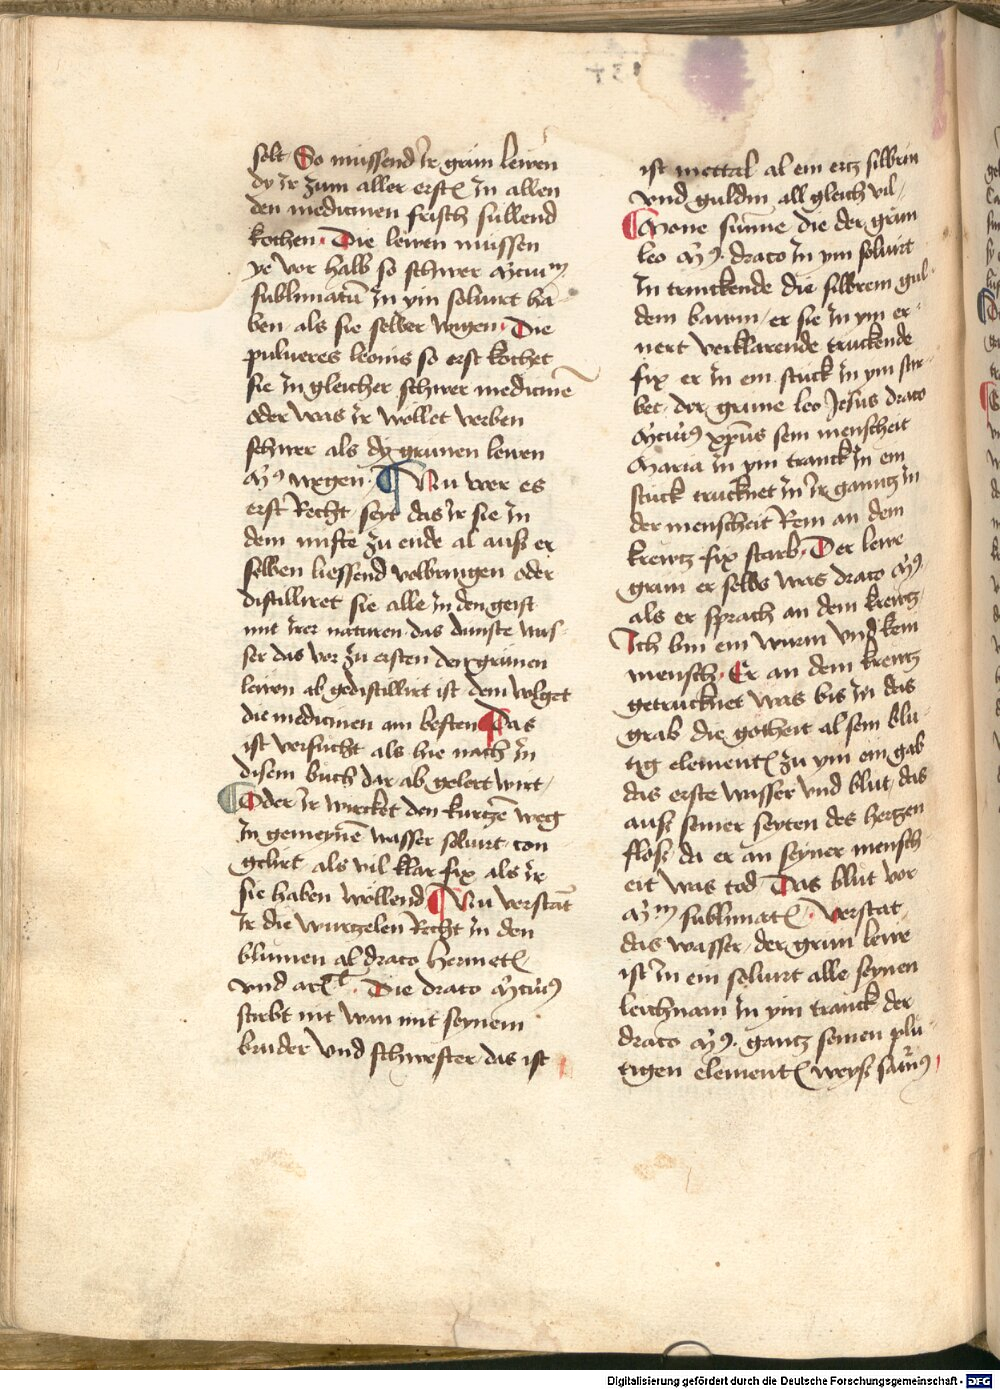 solt So müssend Ir grün lewen
dy Ir zum aller erstē In allen
den medicinen frisch süllend
kochen. Die lewen müssen
ye vor halb so schwer m̄cuiᵐ
sublimatū In yin soluirt ha
ben als sie selber wegen. Die
pulueres leonis so erst kochet
sie In gleicher schwer medicine
oder was Ir wöllet verben
schwer als dy grunen lewen
wegen. ¶ Nu wer es
erst Recht seyt das Ir sie In
dem mifte zu ende al auß er
selben liessend volbringen oder
distilliret sie alle In den geist
mit Irer naturen das dunste was
ser das vor zu ersten den grünen
lewen ab gedistillirt ist dem volget
die medicinen am besten ¶ Das
ist versucht als hie nach In
disem buch dar ab gelert wirt
¶ Oder Ir wircket den kurtzē weg
In gemeynē wasser soluirt con
gelirt als vil klar fix als Ir
sie haben wöllend ¶ Nu verstāt
Ir die wurgelen Recht In den
blumen al draco hermetꝭ
und Die draco m̄cuiꝰ
stirbt nit wan mit seynem
bruder vnd schwester das ist
ist mettal al ein ertz silbrin
vnd guldin all gleich vil
¶ Mone sunne die der grün
leo m̄ꝰ. draco In ym soluirt
In trinckende die silbrem gul
dem bawm er sie In ym er
nert verklarende truckende
fix er In ein stuck In ym stir
bet. der grune leo Jesus draco
m̄cuiꝰ xp̄us sein menscheit
Maria In ym tranck In ein
stuck trucknet In Ir gantz In
der menscheit Rein an dem
krewtz fix starb. Der lewe
grun er selbs was draco m̄ꝰ.
als er sprach an dem krewtz
Ich bin ein wurm vnd kein
mensch. Er an dem krewtz
getrucknet was bis In das
grab die gotheit al sein blu
tig elementꝭ zu ym ein gab
das erste wasser vnd blut das
auß seiner seyten des hertzen
floß da er an seyner mensch
eit was tod Das blut vor
m̄ᵐ sublimatꝭ. verstat
das wasser der grun lewe
ist In ein soluirt alle seynen
leichnam In ym tranck der
draco m̄ꝰ. gantz seinen plu
tigen elementꝭ weyß
Digitalisierung gefördert durch die Deutsche Forschungsgemeinschaft - DFG